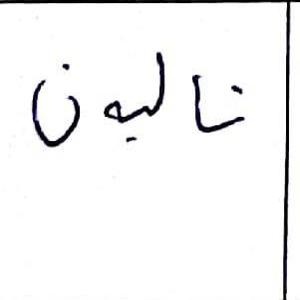 نالیون